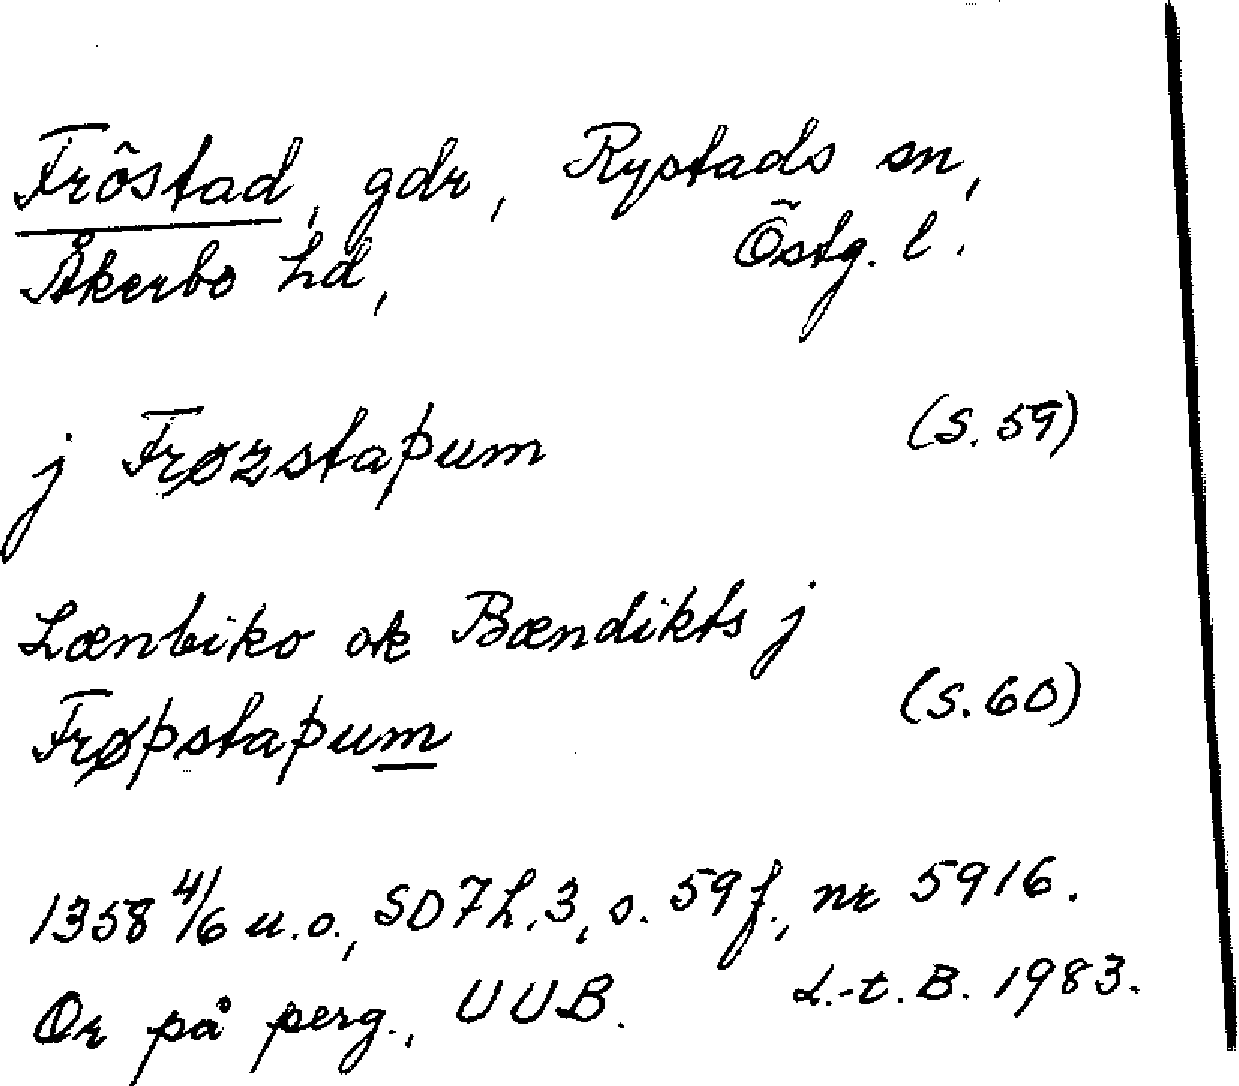 Fröstad, gdr, Rystads sn,
Åkerbo hd, Östg. l.
j Frøzstaþum (S. 59)
Lænbiko ok Bændikts j
Frøþstaþum (S. 60)
1358 4/6 u.o., SD 7 h. 3, s. 59 f., nr 5916.
Or på perg., UUB. L.-t. B. 1983.